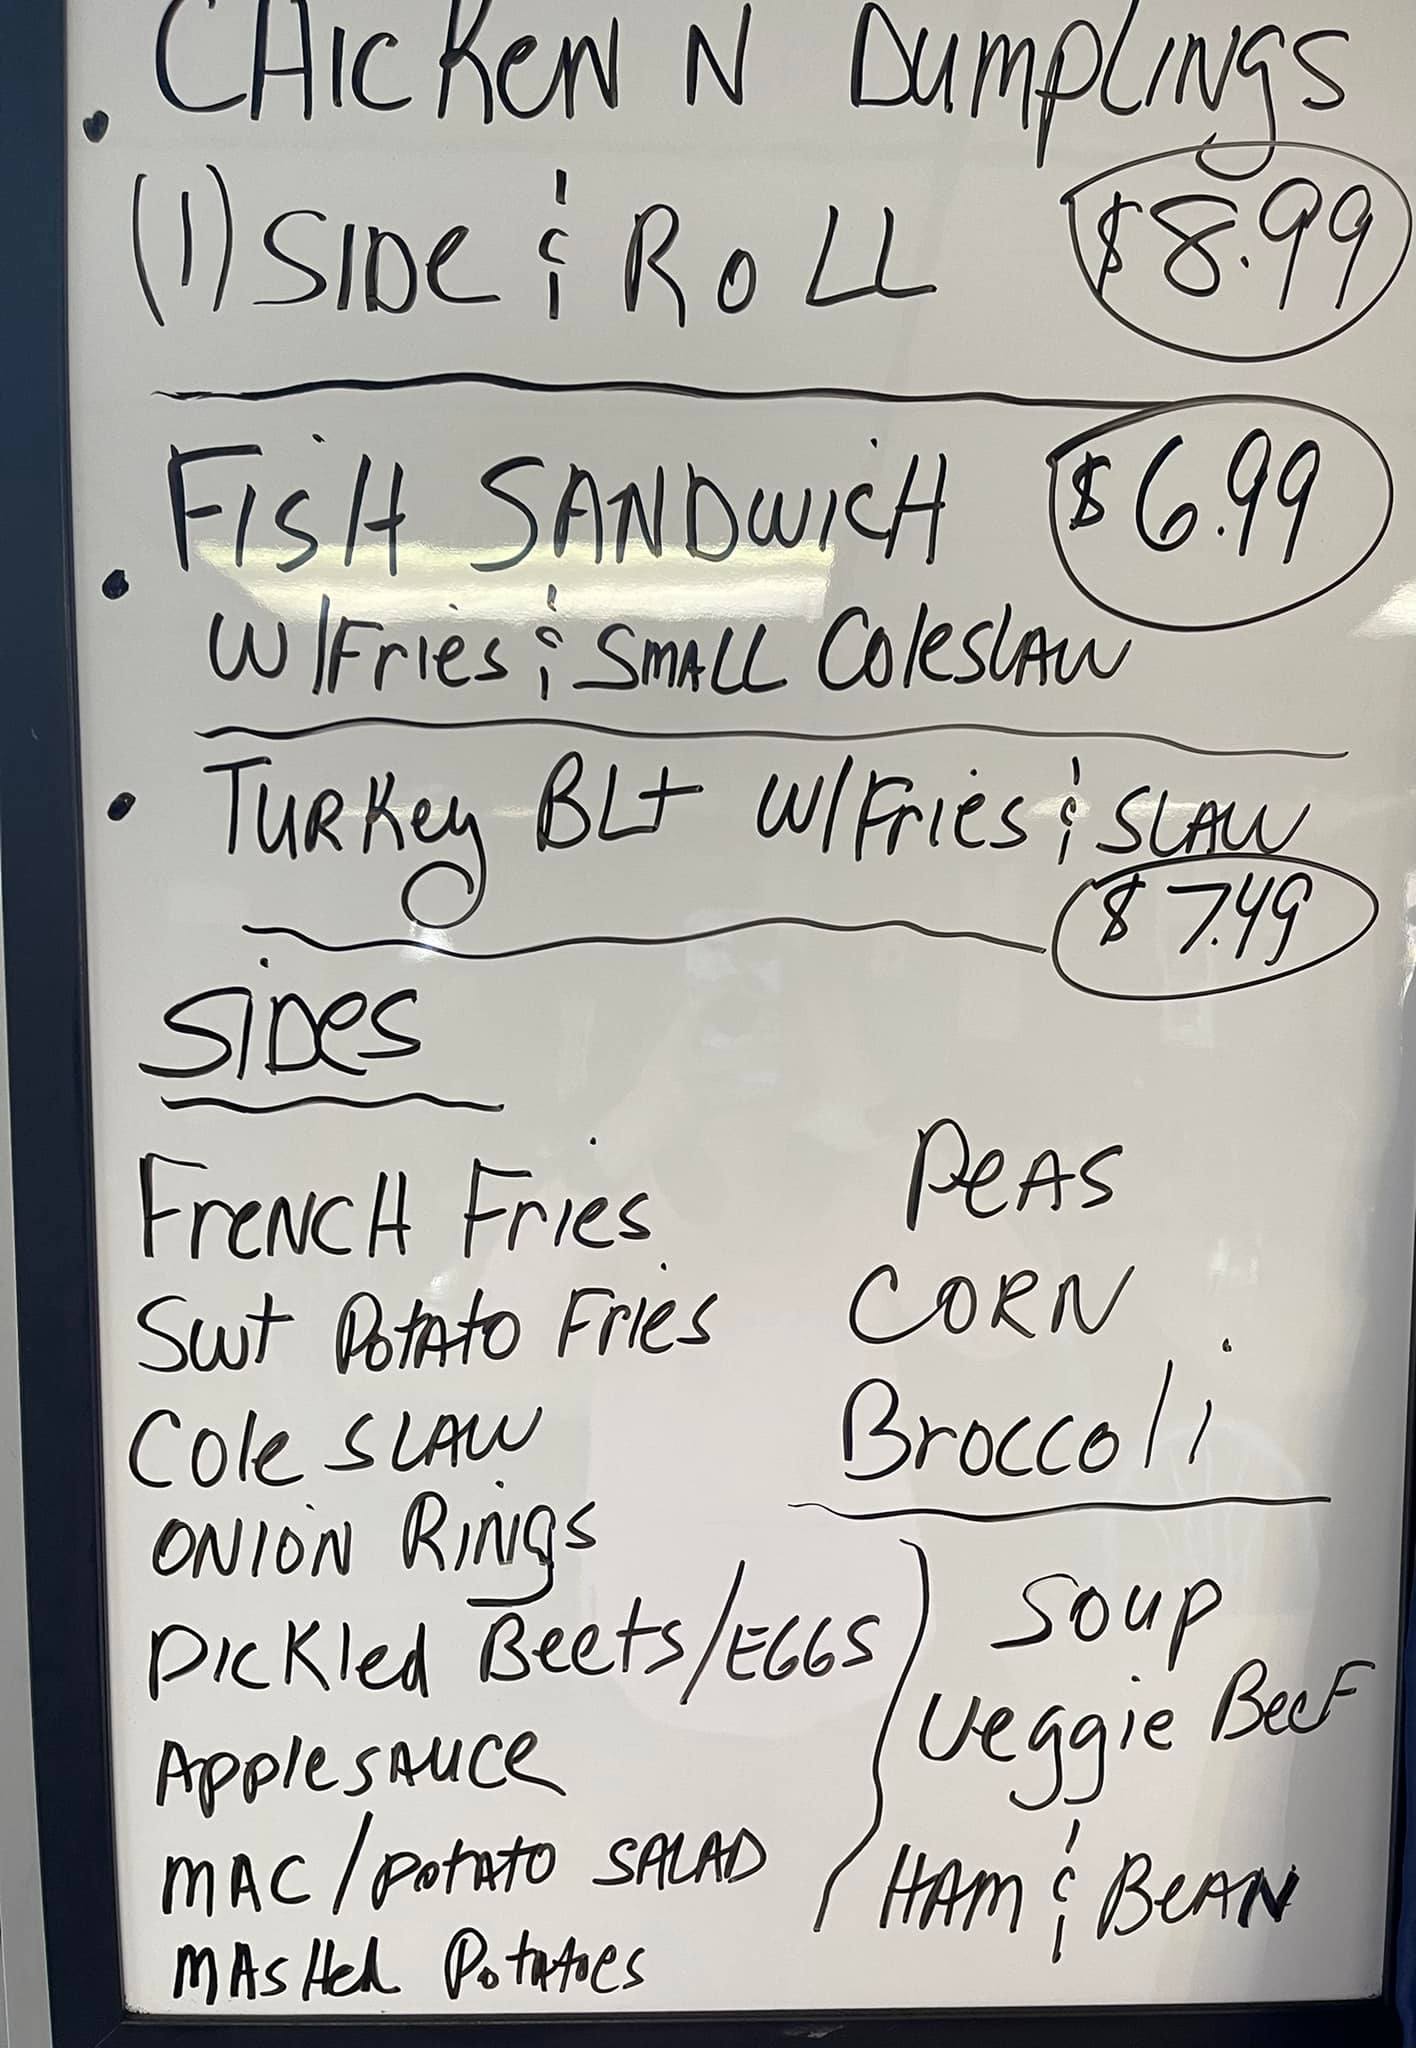 CHICKEN N DUMPLINGS
(1) SIDE & ROLL $8.99
FISH SANDWICH $6.99
W/Fries & SMALL ColeSLAW
TURKey BLt W/Fries & SLAW
$7.49
SIDES
FRENCH Fries
Swt Potato Fries
Cole SLAW
ONION RINgS
PICKled Beets/EGGS
ApplesAUCe
MAC/Potato SALAD
MASHed Potatoes
PeAS
CORN
Broccoli
SOUP
Veggie BeeF
HAM & BeAN